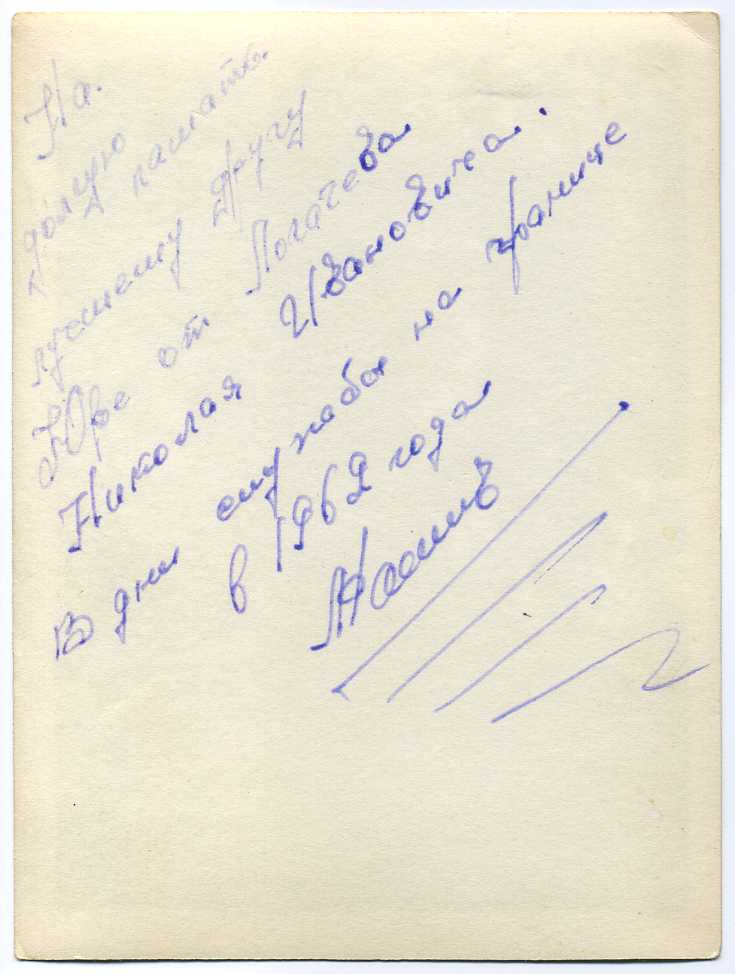 На.
долгую память.
лучшему другу
Юре от Логачёва
Николая Ивановича.
Во дни службы на границе
в 1962 года